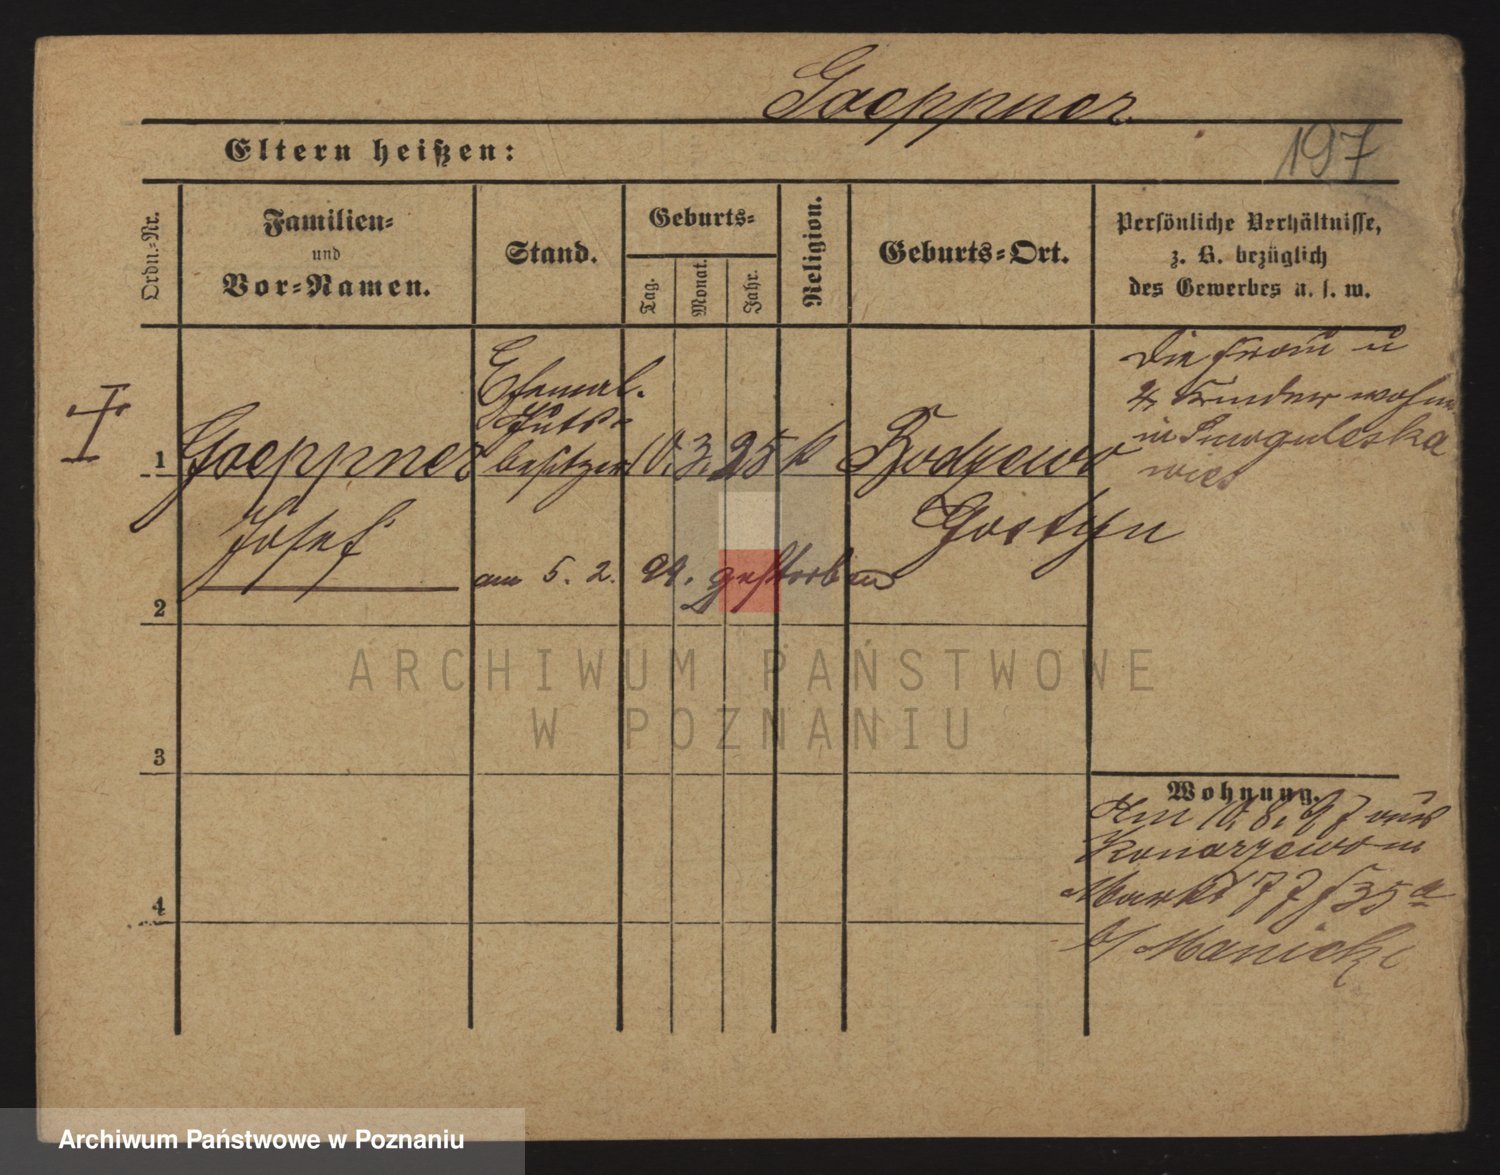 Goeppner
197
Eltern heißen:
Ordn.-Nr.
Familien-
und
Vor-Namen.
Stand.
Geburts-
Tag.
Monat.
Jahr.
Religion.
Geburts-Ort.
Persönliche Verhältnisse,
z. B. bezüglich
des Gewerbes u. s. w.
Ehemal.
Guts-
1 Goeppner besitzer 10. 3. 25 k Bodzewo
Josef Gostyn
am 5. 2. 94. gestorben
die Frau u
4 Kinder wohnen
in Smoguleska
wies
2
3
4
Wohnung.
Am 10. 8. 97 aus
Konarzewo n.
Markt 77 b/ Manicki
ARCHIWUM PAŃSTWOWE
W POZNANIU
Archiwum Państwowe w Poznaniu